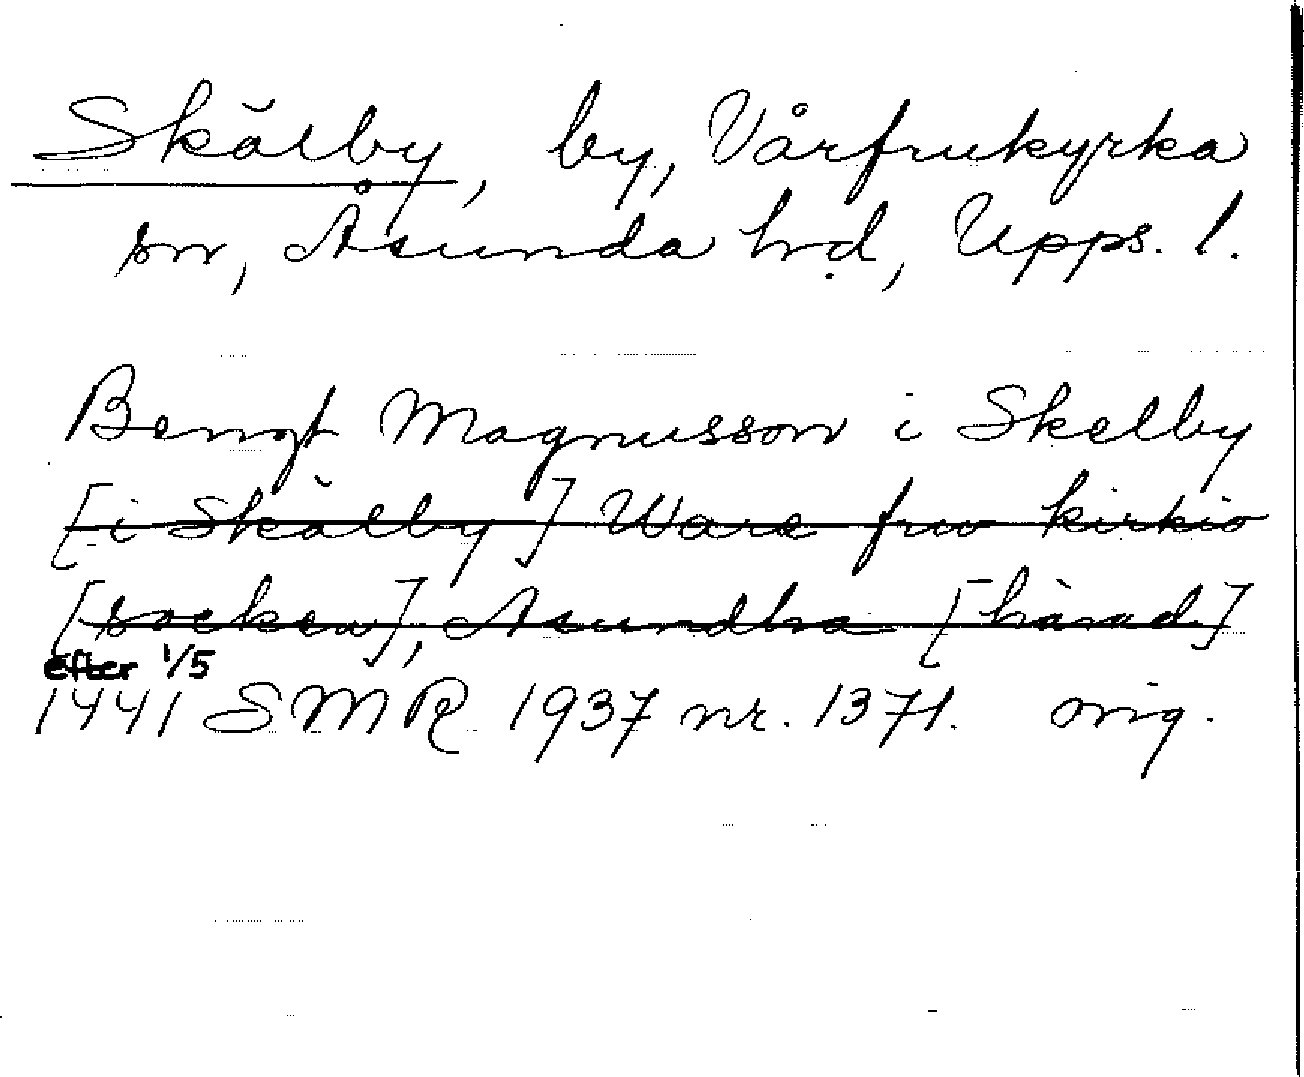 Skälby, by, Vårfrukyrka
sn, Åsunda hrd, Upps. l.
Bengt Magnusson i Skelby
[i Skälby] Ware frw kirkio
[socken], Asundha [härad]
efter 1/5
1441 SMR 1937 nr. 1371. orig.